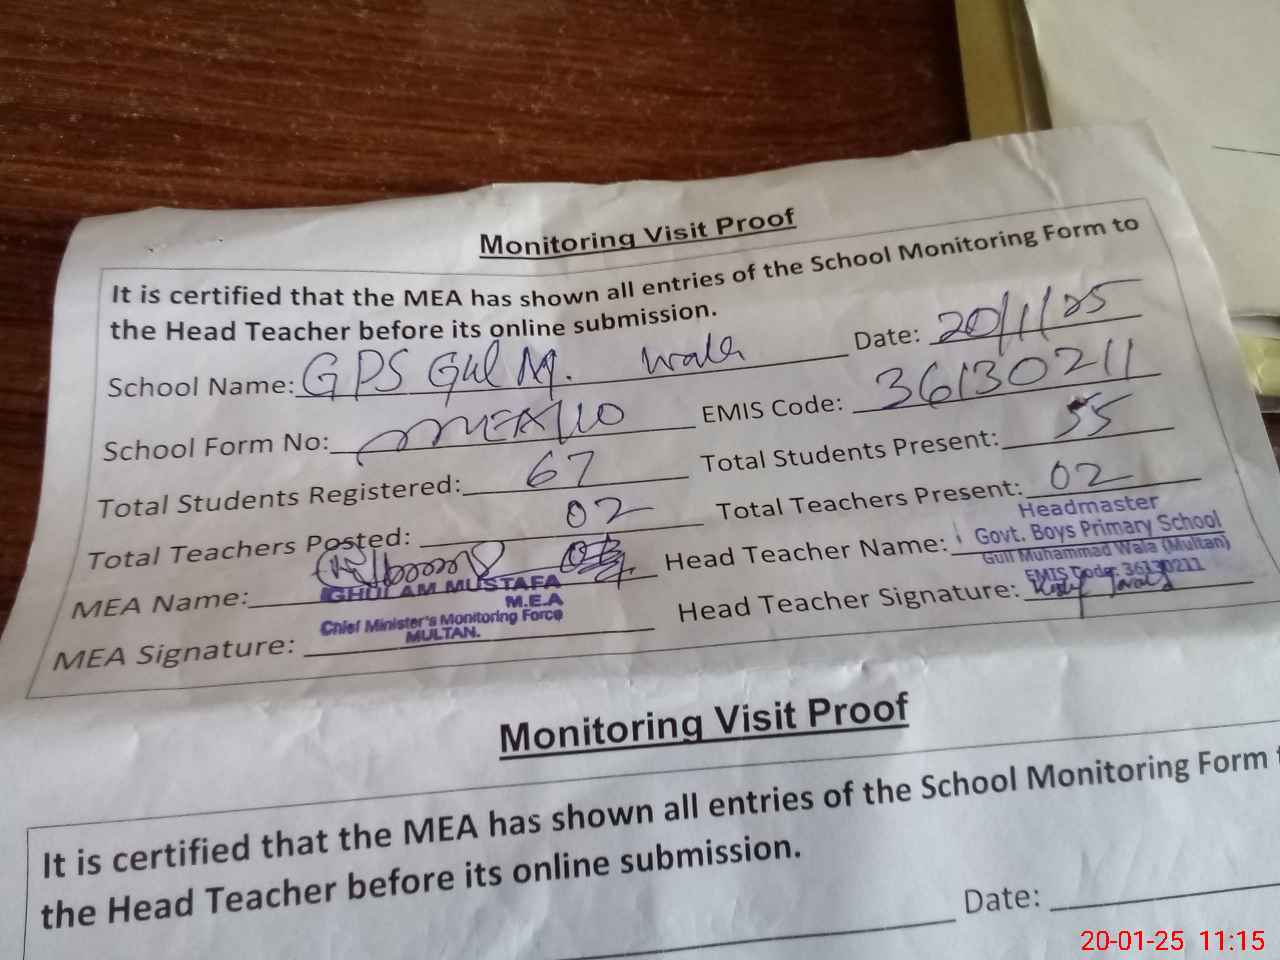 Monitoring Visit Proof
It is certified that the MEA has shown all entries of the School Monitoring Form to
the Head Teacher before its online submission.
School Name: GPS Gul M. wala Date: 20/1/25
School Form No: EMIS Code: 36130211
Total Students Registered: 67 Total Students Present: 55
Total Teachers Posted: 02 Total Teachers Present: 02
MEA Name: Head Teacher Name:
GHULAM MUSTAFA
M.E.A
Chief Minister's Monitoring Force
MULTAN.
Headmaster
Govt. Boys Primary School
Gull Muhammad Wala (Multan)
EMIS Code: 36130211
MEA Signature: Head Teacher Signature:
Monitoring Visit Proof
It is certified that the MEA has shown all entries of the School Monitoring Form
the Head Teacher before its online submission.
Date:
20-01-25 11:15